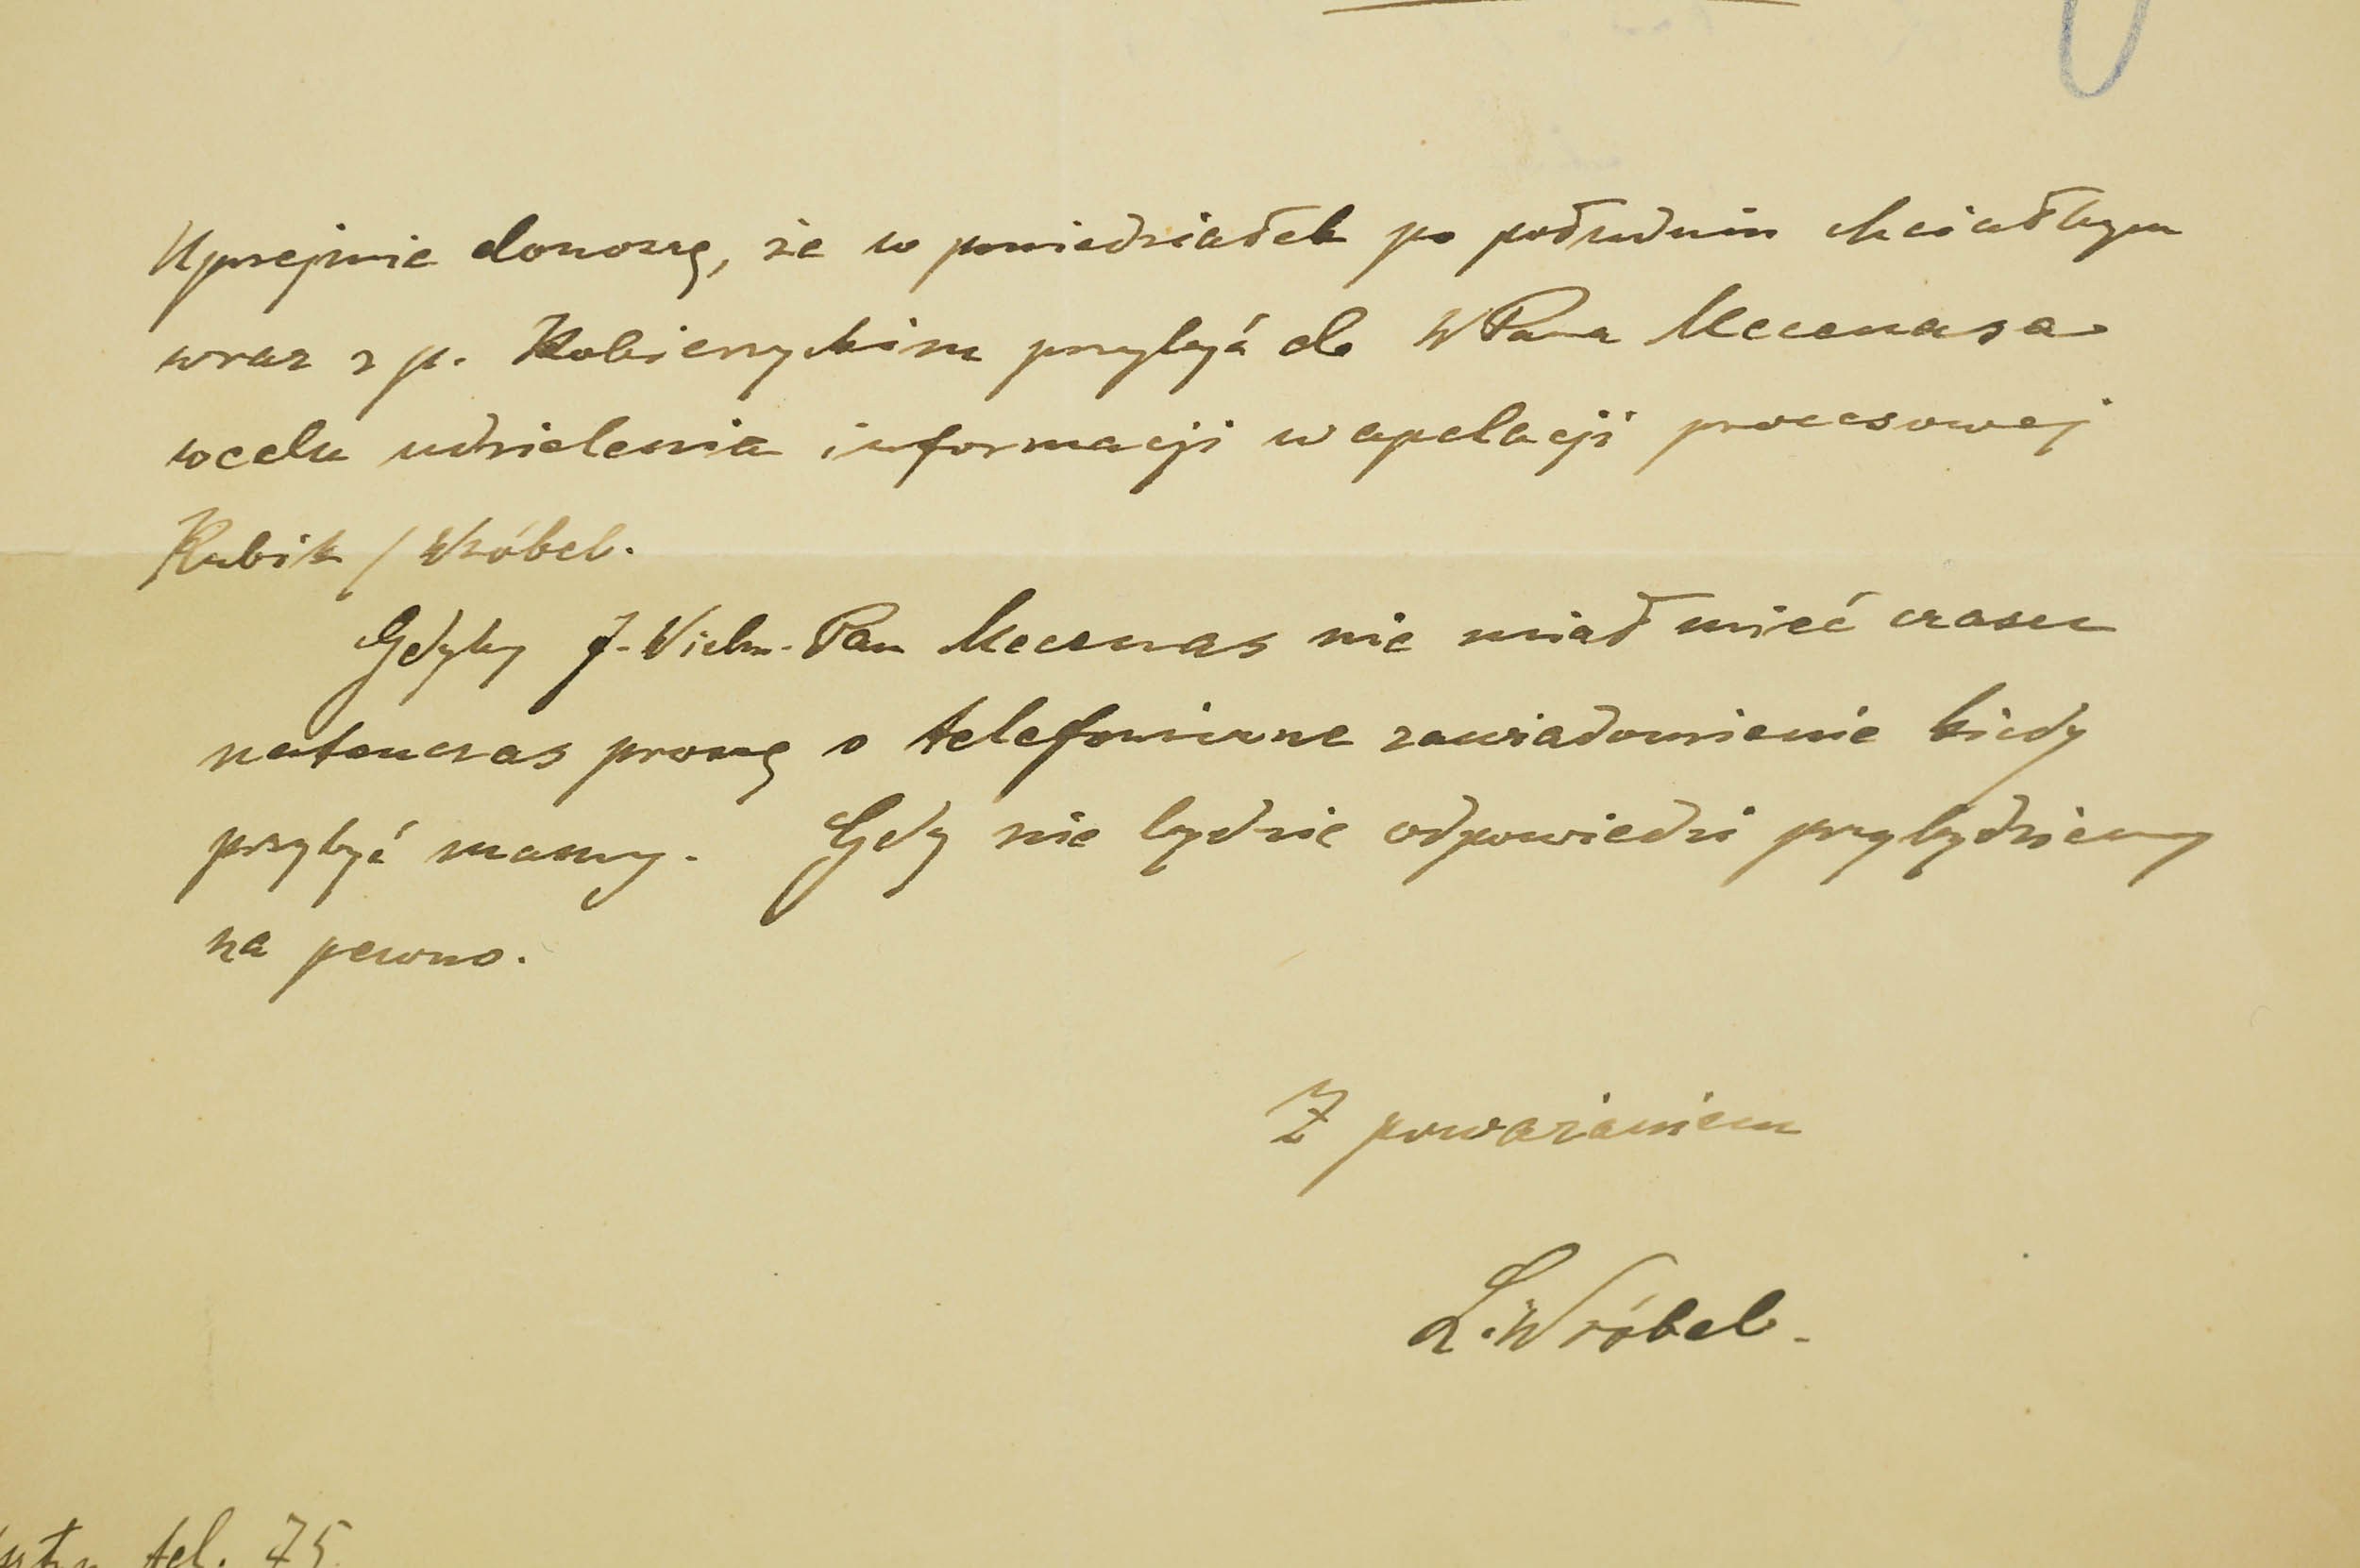 Uprzejmie donoszę, że w poniedziałek po południu chciałbym
wraz z p. Kobierzyckim przybyć do WPana Mecenasa
w celu udzielenia informacji w apelacji procesowej
Kubik / Wróbel.
Gdyby J. Wielm. Pan Mecenas nie miał mieć czasu
natenczas proszę o telefoniczne zawiadomienie kiedy
przybyć mamy. Gdy nie będzie odpowiedzi przybędziemy
na pewno.
Z poważaniem
L. Wróbel.
tel. 75